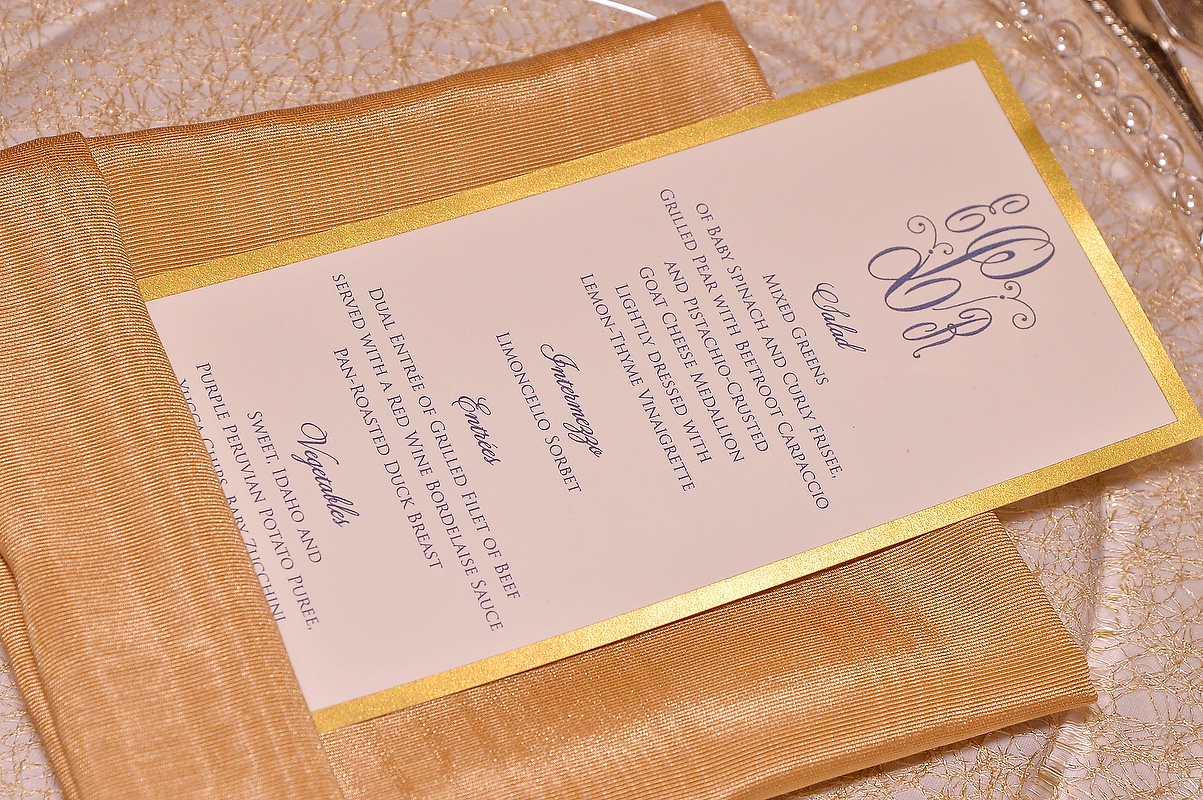 Salad
Mixed Greens
of Baby Spinach and Curly Frisee,
Grilled Pear with Beetroot Carpaccio
and Pistachio-Crusted
Goat Cheese Medallion
Lightly Dressed with
Lemon-Thyme Vinaigrette
Intermezzo
Limoncello Sorbet
Entrées
Dual Entrée of Grilled Filet of Beef
served with a Red Wine Bordelaise Sauce
Pan-Roasted Duck Breast
Vegetables
Sweet, Idaho and
Purple Peruvian Potato Puree,
Yucca Chips, Baby Zucchini